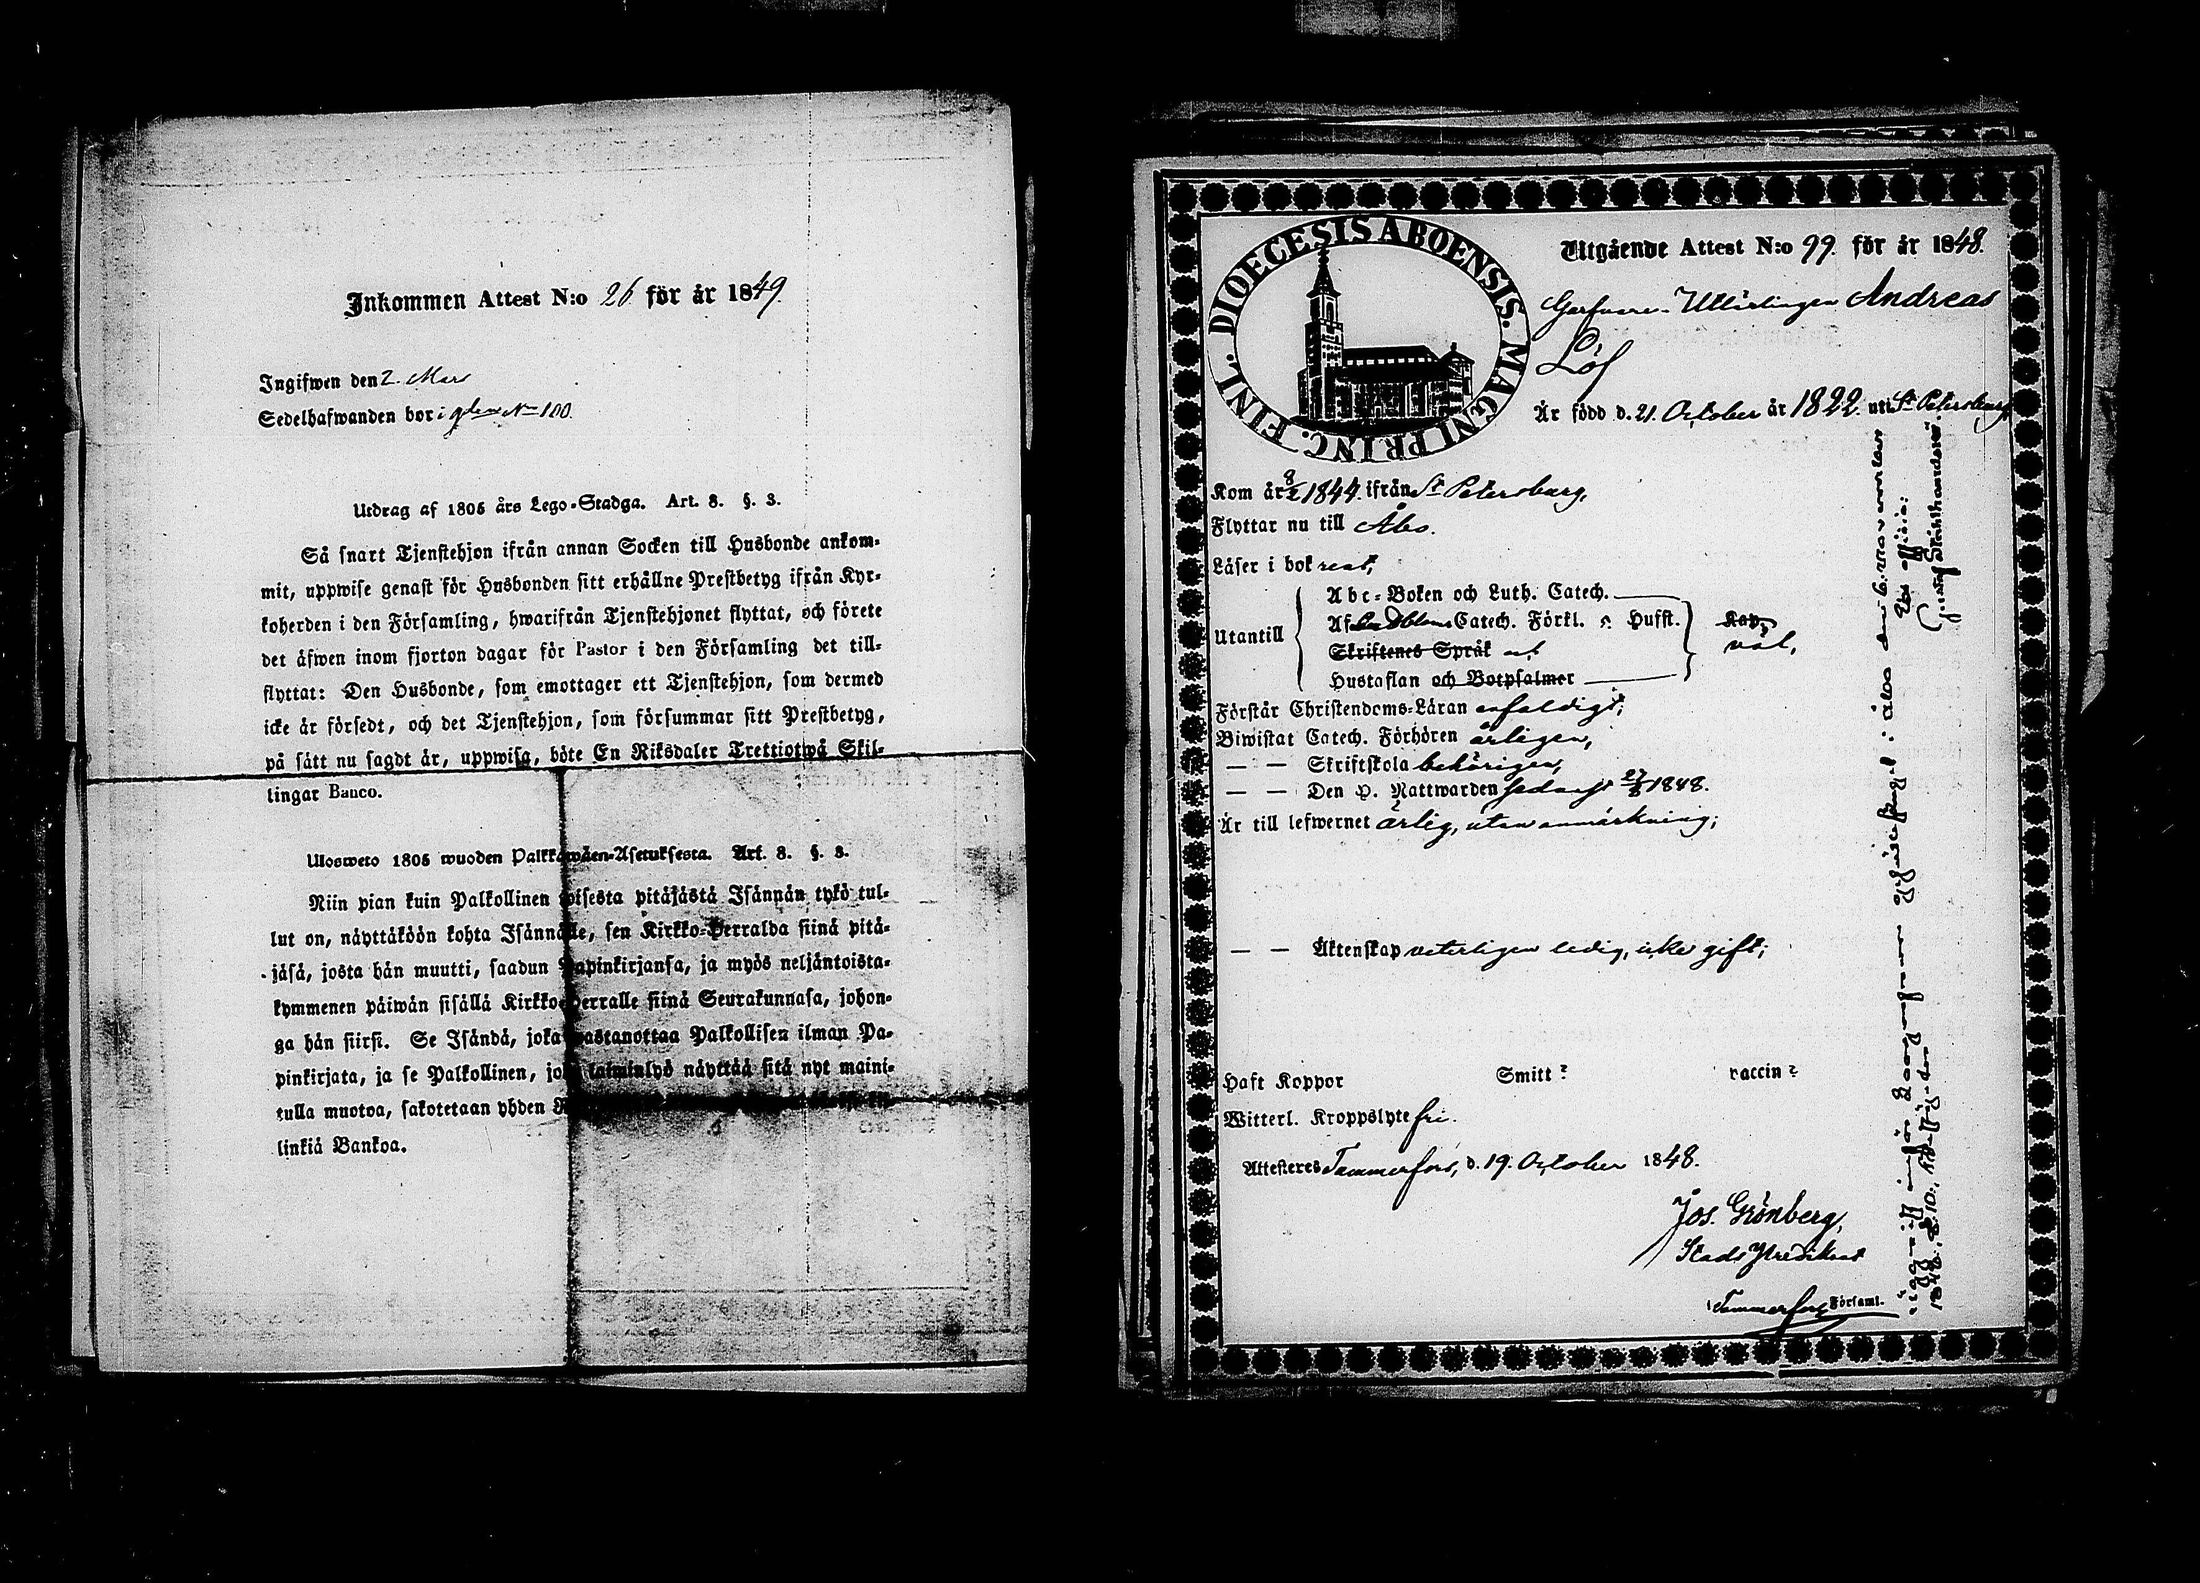 Inkommen Attest N:o 26 för år 1849
Ingifwen den 2. Mars
Sedelhafwanden bor i qtern No 100.
Utdrag af 1805 års Lego-Stadga. Art. 8. §. 3.
Så snart Tjenstehjon ifrån annan Socken till Husbonde ankom-
mit, uppwise genast för Husbonden sitt erhållne Prestbetyg ifrån Kyr-
koherden i den Församling, hwarifrån Tjenstehjonet flyttat, och förete
det äfwen inom fjorton dagar för Pastor i den Församling det till-
flyttat: Den Husbonde, som emottager ett Tjenstehjon, som dermed
icke är försedt, och det Tjenstehjon, som försummar sitt Prestbetyg,
på sätt nu sagdt är, uppwisa, böte En Riksdaler Trettiotwå Skil-
lingar Banco.
Ulosweto 1805 wuoden Palkkawäen-Asetuksesta. Art. 8. §. 3.
Niin pian kuin Palkollinen toisesta pitäjästä Isännän tykö tul-
lut on, näyttäköön kohta Isännälle, sen Kirkko-Herralda siinä pitä-
jäsä, josta hän muutti, saadun Papinkirjansa, ja myös neljäntoista-
kymmenen päiwän sisällä Kirkko-Herralle siinä Seurakunnasa, johon-
ga hän siirsi. Se Isändä, joka wastanottaa Palkollisen ilman Pa-
pinkirjata, ja se Palkollinen, joka laiminlyö näyttää sitä nyt maini-
tulla muotoa, sakotetaan yhden
linkiä Bankoa.
DIOECESIS ABOENSIS. MAGNI PRINC. FINL.
Utgående Attest N:o 99. för år 1848.
Garfvare-Utlärlingen Andreas
Löf
Är född d. 21. October år 1822 uti St Petersburg
Kom år 8/2 1844. ifrån St Petersburg,
Flyttar nu till Åbo.
Läser i bok rent,
Utantill
Abc-Boken och Luth. Catech.
Af Catech. Förkl. o Husst.
Skriftenes Språk
Hustaflan och Botpsalmer
väl,
Förstår Christendoms-Läran enfaldigt;
Biwistat Catech. Förhören årligen,
— — Skriftskola behörigen,
— — Den H. Nattwarden sednast 27/8 1848.
Är till lefwernet ärlig, utan anmärkning;
— — Äktenskap veterligen ledig, icke gift;
Haft Koppor Smitt? vaccin?
Witterl. Kroppslyte fri.
Attesteres Tammerfors, d. 19. October 1848.
Jos. Grönberg,
Stads Predikant
i Tammerfors Församl.